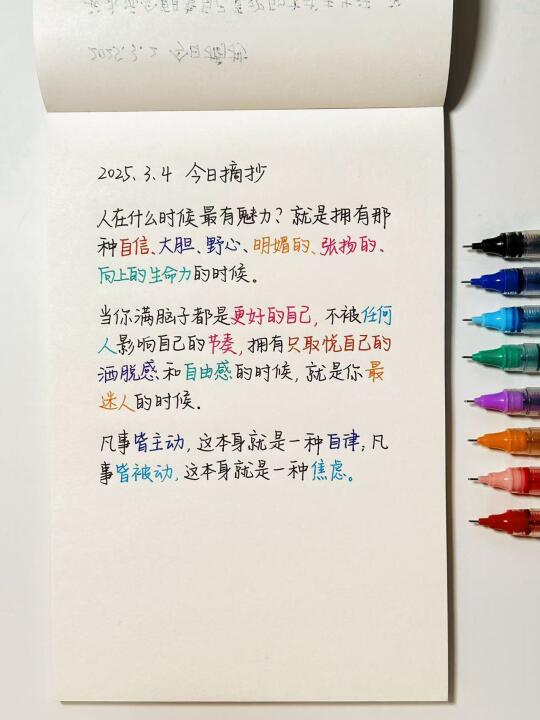 2025.3.2 今日摘抄
2025.3.4 今日摘抄
人在什么时候最有魅力?就是拥有那
种自信、大胆、野心、明媚的、张扬的、
向上的生命力的时候。
当你满脑子都是更好的自己,不被任何
人影响自己的节奏,拥有只取悦自己的
洒脱感和自由感的时候,就是你最
迷人的时候.
凡事皆主动,这本身就是一种自律;凡
事皆被动,这本身就是一种焦虑。